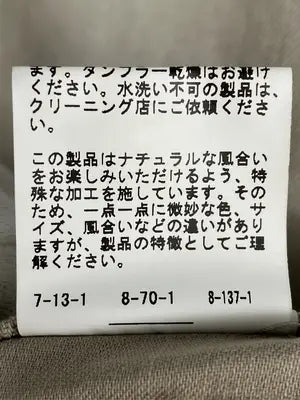 ます。タンブラー乾燥はお避け
ください。水洗い不可の製品は、
クリーニング店にご依頼くださ
い。
この製品はナチュラルな風合い
をお楽しみいただけるよう、特
殊な加工を施しています。その
ため、一点一点に微妙な色、サ
イズ、風合いなどの違いがあり
ますが、製品の特徴としてご理
解ください。
7-13-1 8-70-1 8-137-1